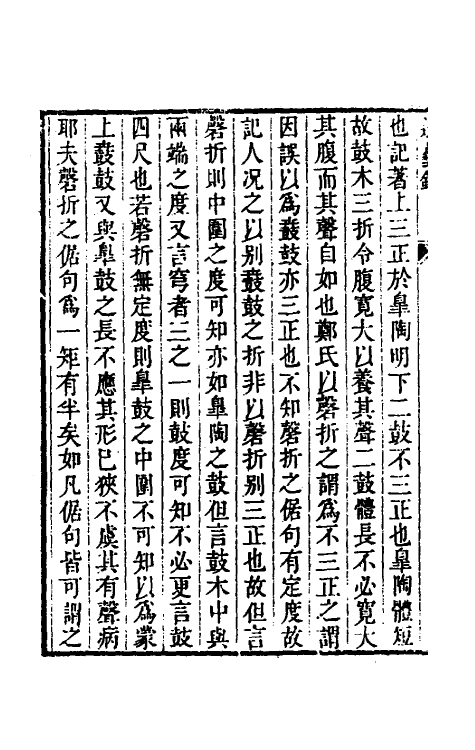 也記著上三正於臯陶明下二鼓不三正也臯陶體短
故鼓木三折令腹寬大以養其聲二鼓體長不必寬大
其腹而其聲自如也鄭氏以磬折之謂爲不三正之謂
因誤以爲鼖鼓亦三正也不知磬折之倨句有定度故
記人况之以别鼖鼓之折非以磬折别三正也故但言
磬折則中圍之度可知亦如臯陶之鼓但言鼓木中與
兩端之度又言穹者三之一則鼓度可知不必更言鼓
四尺也若磬折無定度則臯鼓之中圍不可知以爲蒙
上鼖鼓又與臯鼓之長不應其形已狹不虞其有聲病
耶夫磬折之倨句爲一矩有半矣如凡倨句皆可謂之